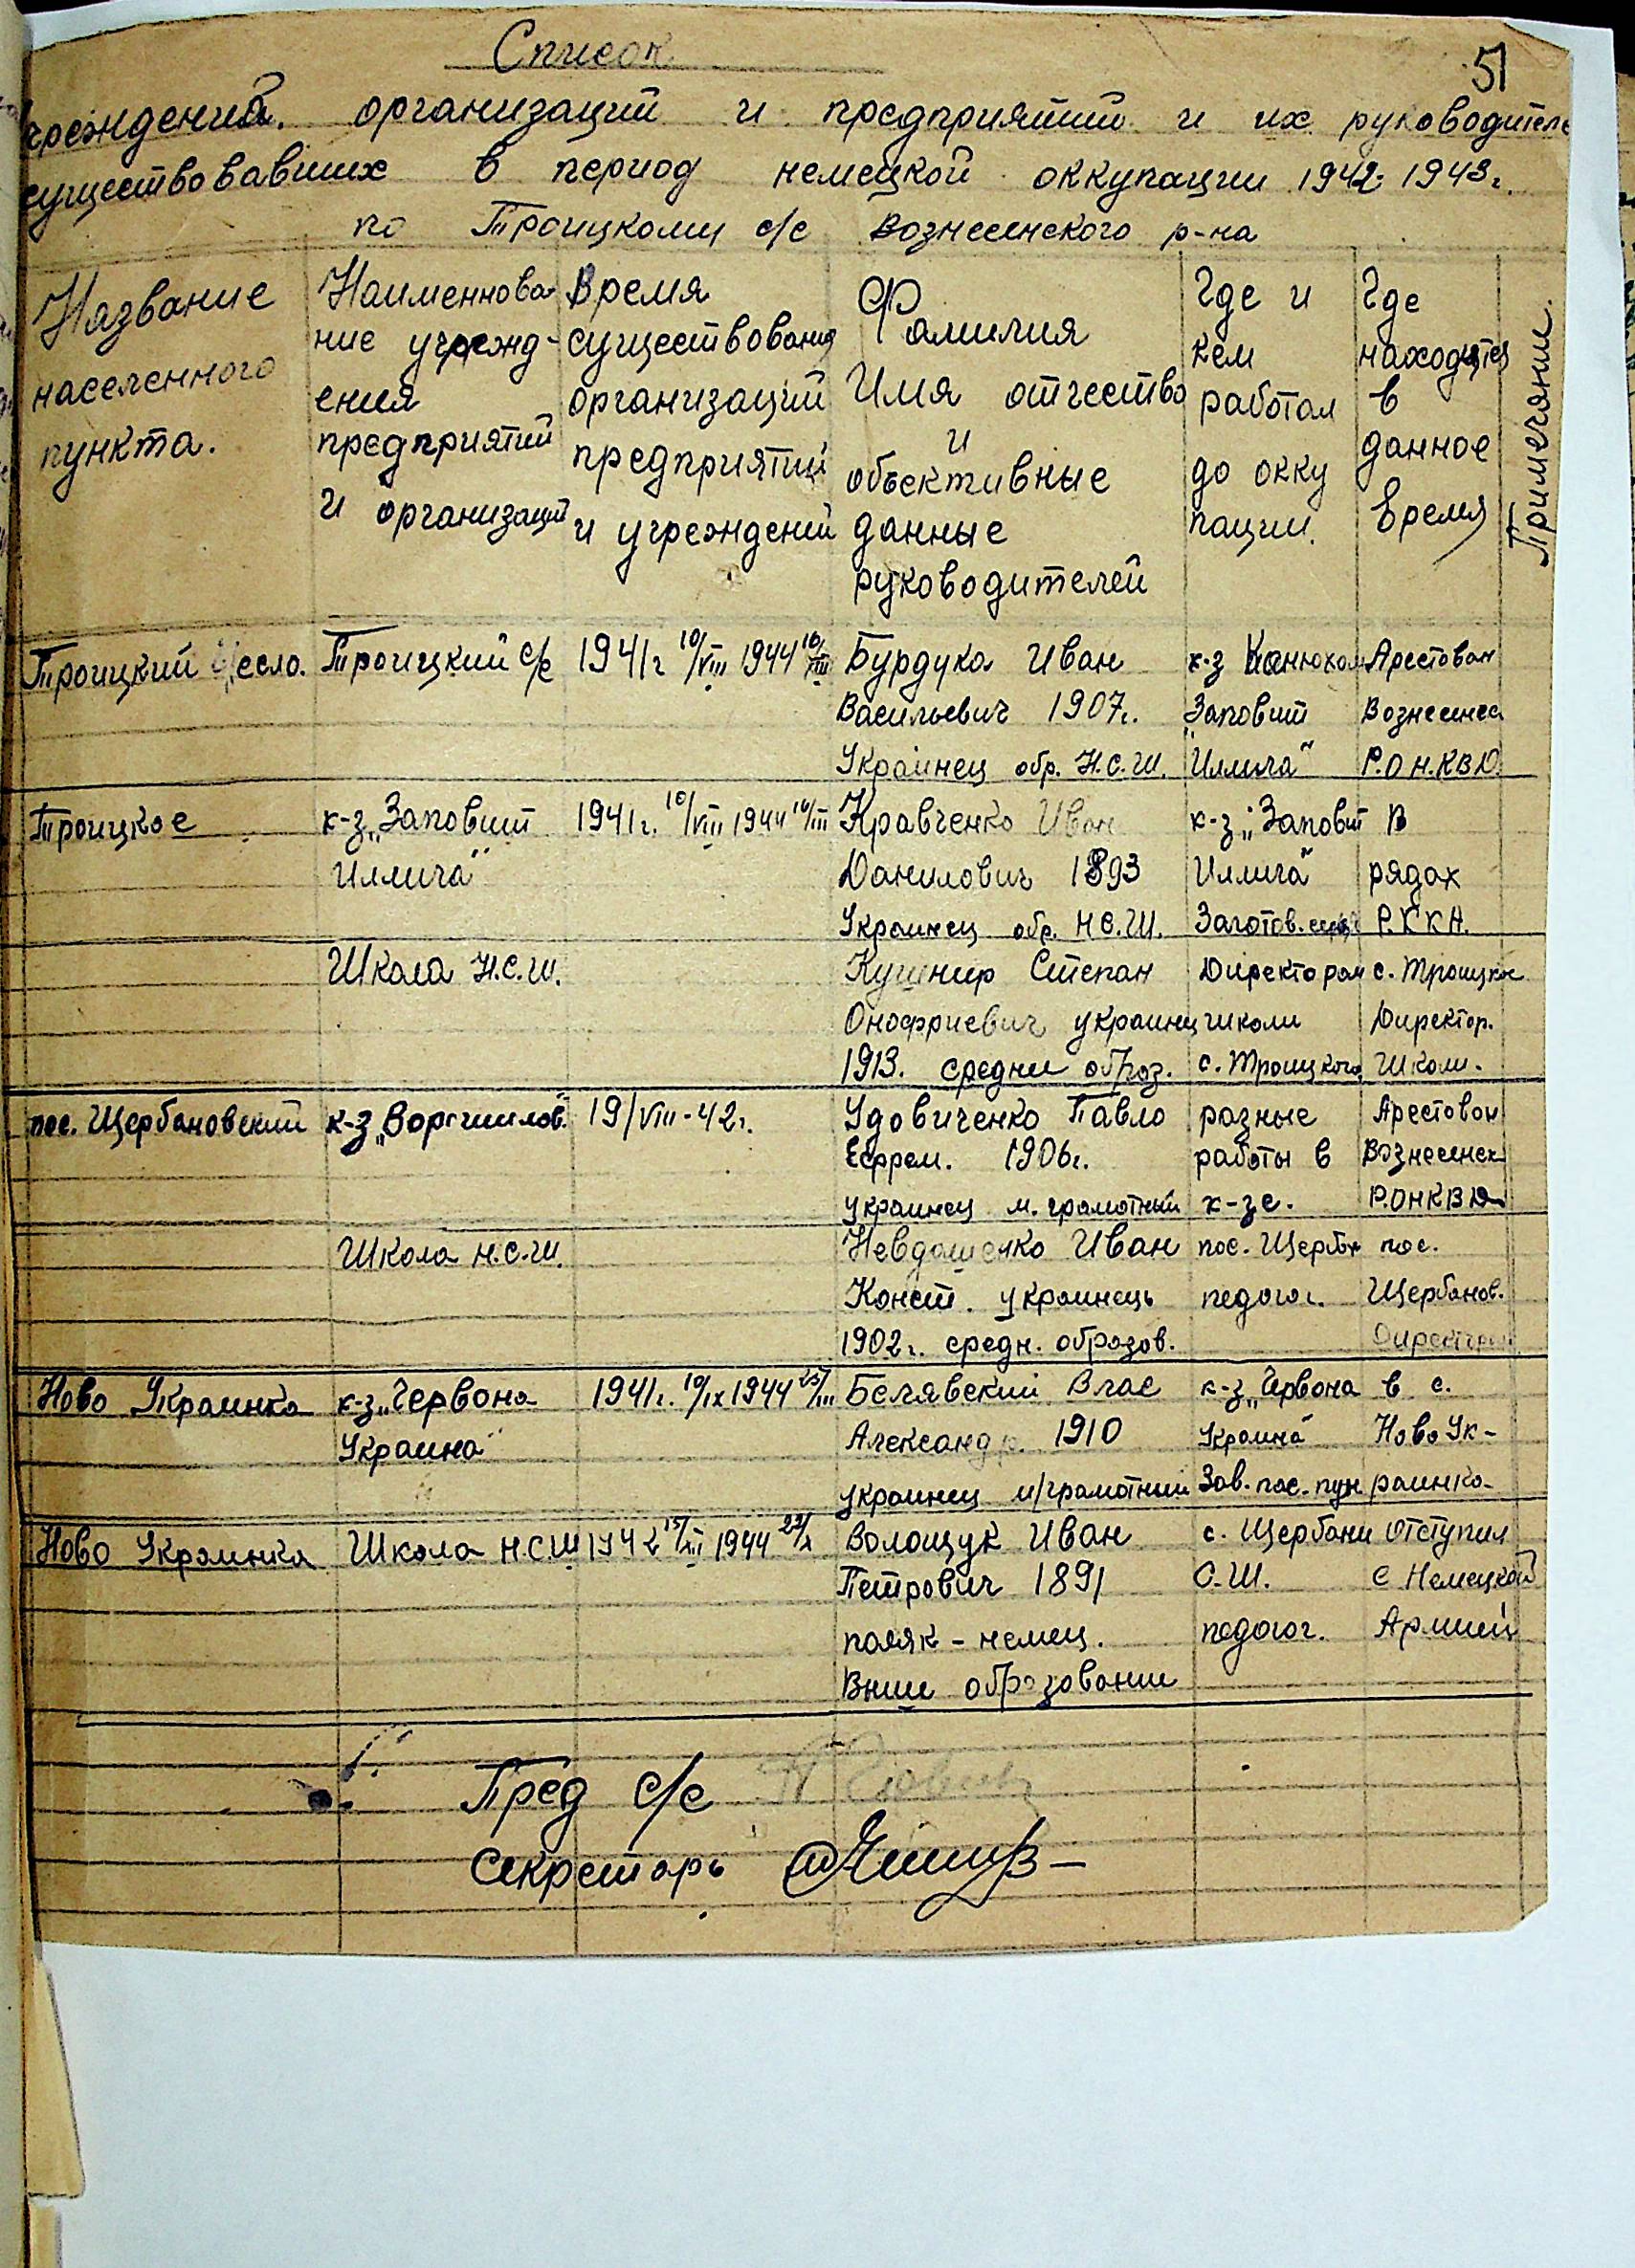 Список
51
чреждений. организаций и предприятий и их руководителе
существовавших в период немецкой оккупации 1942-1943г.
по Троицкому с/с Вознесенского р-на
Название
населенного
пункта.
Наименнова-
ние учрежд-
ения
предприятий
и организаций
Время
существования
организаций
предприятий
и учреждений
Фамилия
Имя отчество
и
объективные
данные
руководителей
Где и
кем
работал
до окку
пации.
Где
находится
в
данное
время
Примечание.
Троицкий с/с 1941г 10/VIII 1944 16/III Бурдука Иван к-з Арестован
Васильевич 1907г. "Заповит Вознесенск
Украінец обр. Н.С.Ш. Иллича" Р.О Н.КВД
Троицкое к-з „Заповит 1941г. 10/VIII 1944 16/III Кравченко Иван к-з „Заповит В
Иллича" Данилович 1893 Иллича" рядах
Украинец обр. Н С.Ш. Р.К К А.
Школа Н.С.Ш. Кушнир Степан Директором с. Троицкое
Онофриевич украинец школи Директор.
1913. средни образ. с. Троицкого Школи.
пос. Щербановский к-з „Ворошилов." 19/VIII-42г. Удовиченко Павло разные Арестован
Ефрем. 1906г. работы в Вознесенск
украинец м. грамотный к-зе. Р.ОНКВД
Школа Н.С.Ш. Иван пос. Щербан пос.
Конст. украинець педогог. Щербанов.
1902г. средн. образов. Директором
Ново Украинка к-з „Червона 1941г. 10/IX 1944 25/III Белявский Влас к-з „Червона в с.
Украина" Александр. 1910 Украина" Ново Ук-
украинец м/грамотний Зав. пос. пун раинка-
Ново Украинка Школа НСШ 1942 15/XII 1944 Волощук Иван с. Щербани Отступил
Петрович 1891 С.Ш. с Немецкой
поляк - немец. педогог. Армией
Выше образовании
Пред с/с
Секретарь